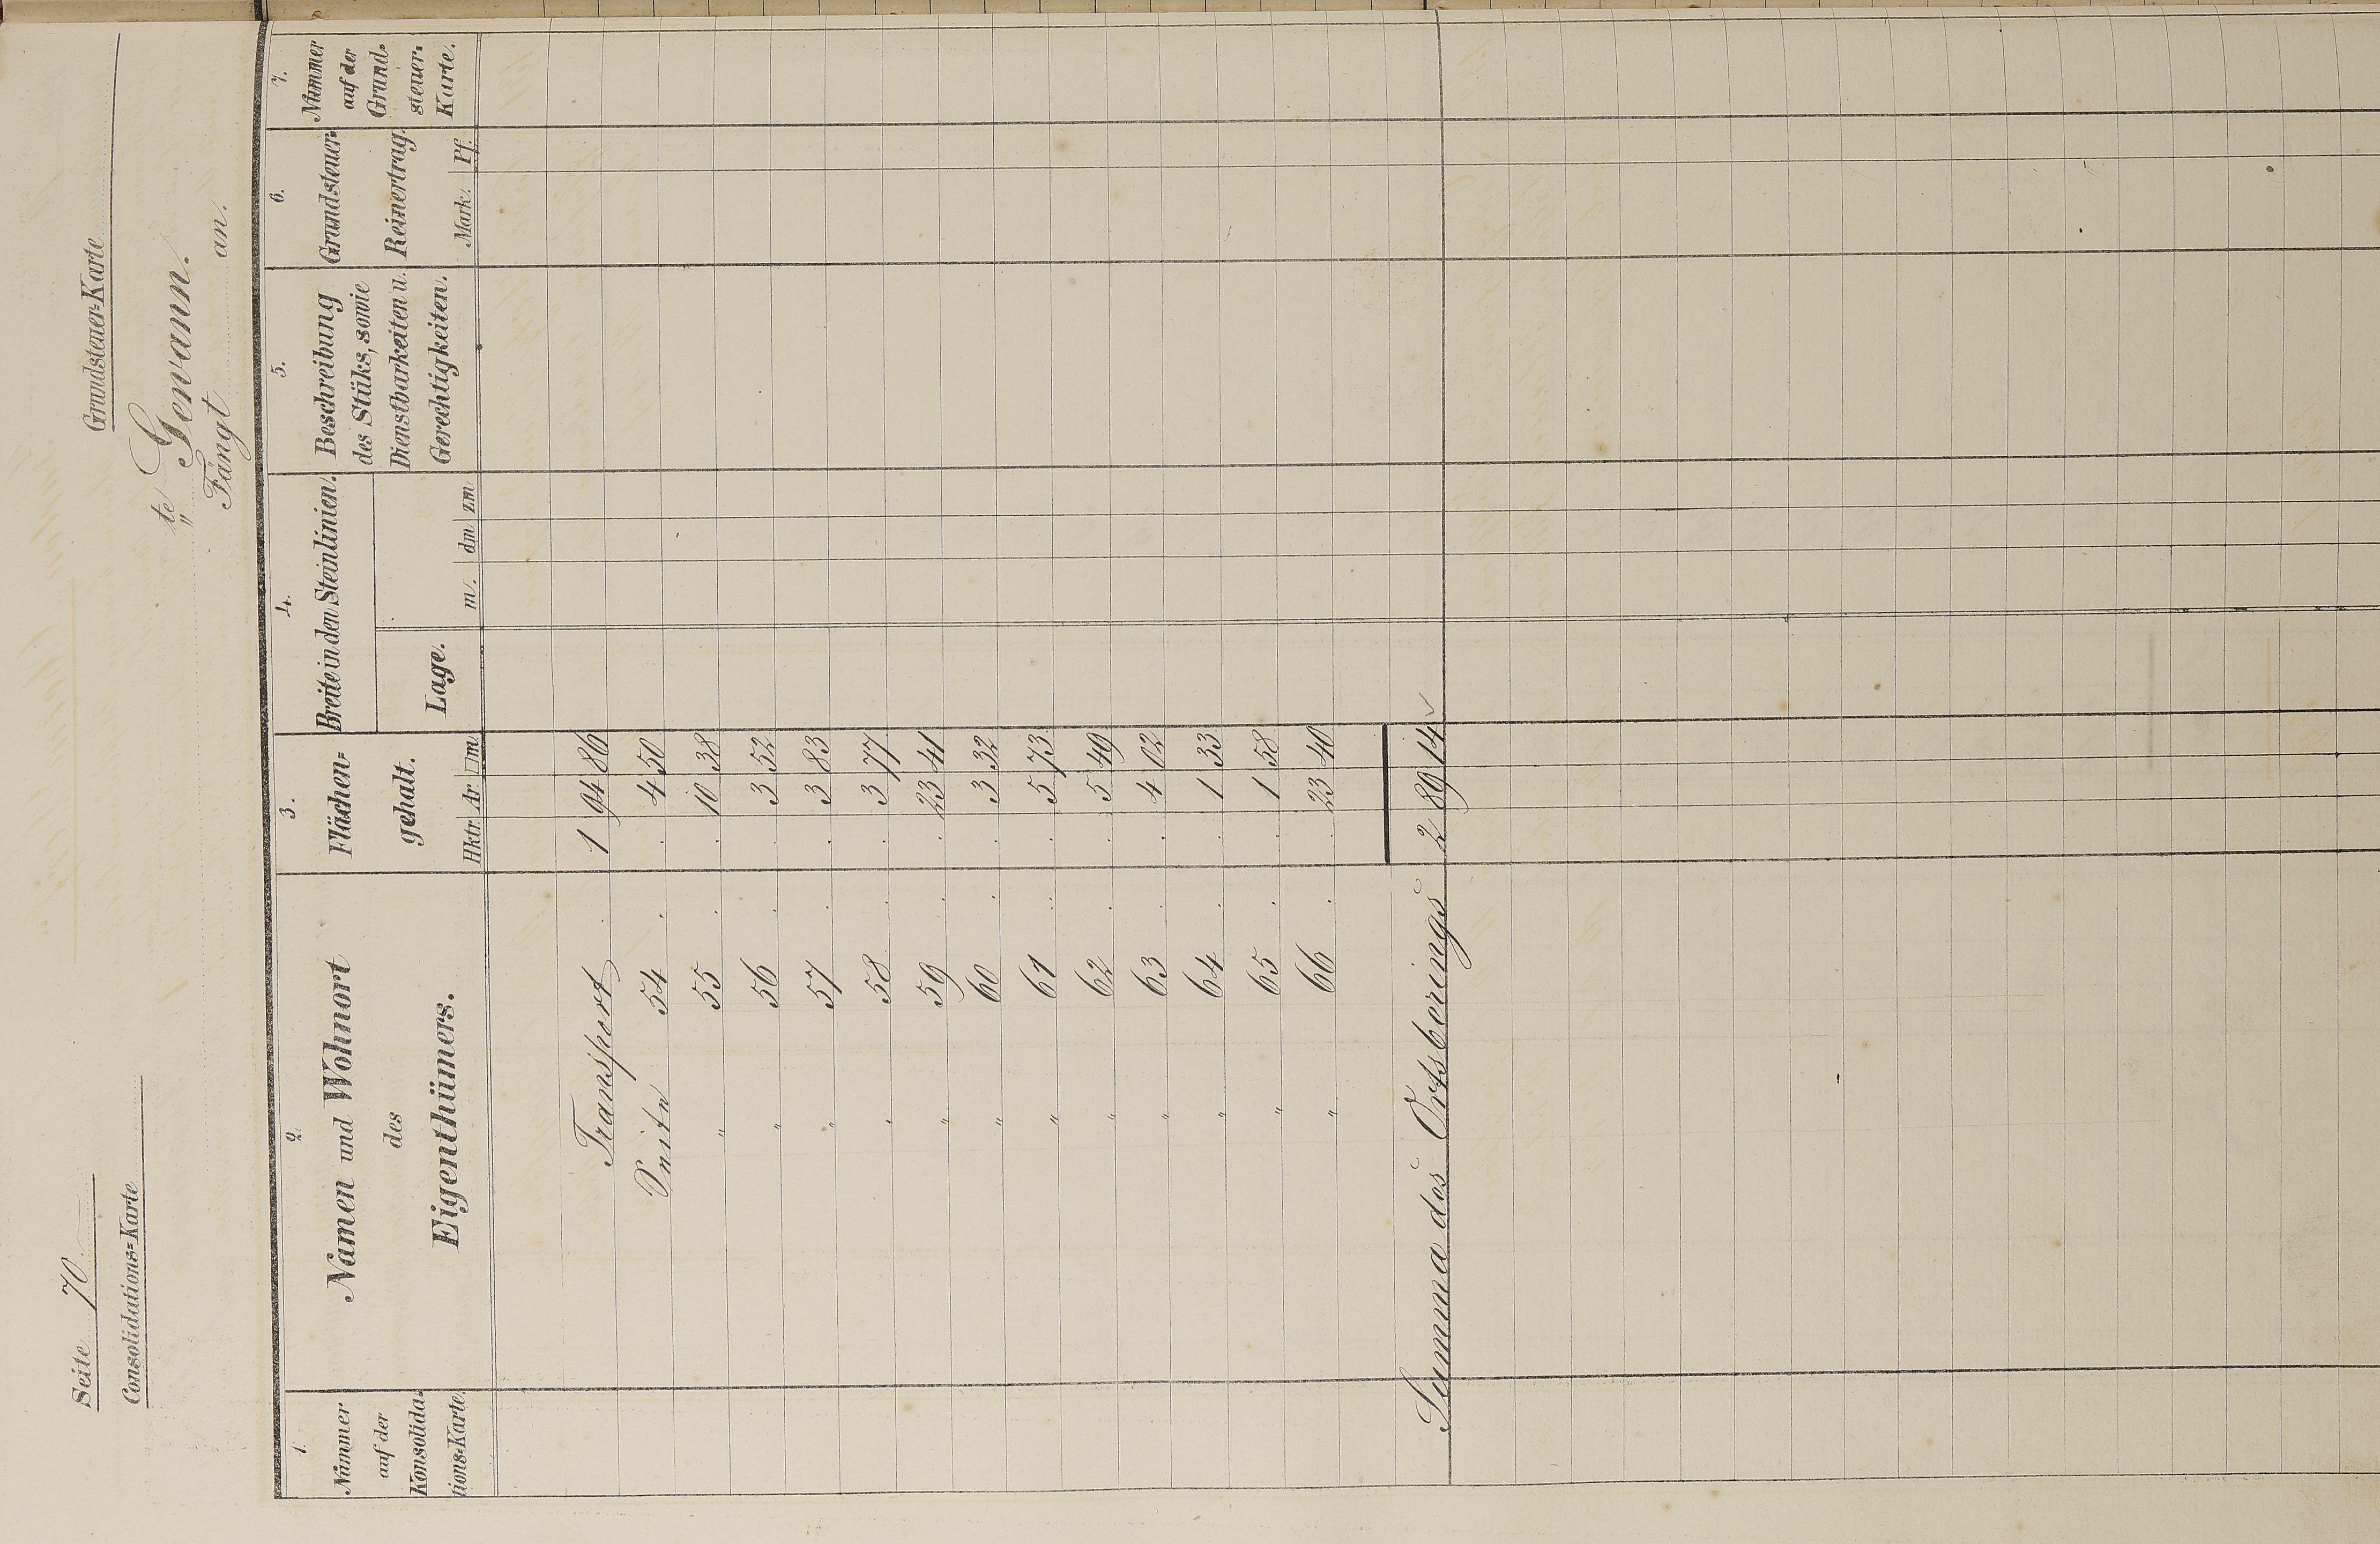 Seite 70.
Grundsteuer=Karte
Consolidations=Karte
te Gewann.
" Fängt an.
1. 2. 3. 4. 5. 6. 7.
Nummer auf der Konsolida-tions=Karte.
Namen und Wohnort
des
Eigenthümers.
Flächen=
gehalt.
Hktr. Ar □m.
Breite in den Steinlinien.
Lage. m. dm zm
Beschreibung
des Stüks, sowie
Dienstbarkeiten u.
Gerechtigkeiten.
Grundsteuer=
Reinertrag.
Mark. Pf.
Nummer
auf der
Grund=
steuer=
Karte.
Transport 1 94 86
Seite 54 . . 4 50
" 55 . . 10 38
" 56 . . 3 52
" 57 . . 3 83
" 58 . . 3 77
" 59 . . 23 41
" 60 . . 3 32
" 61 . . 5 73
" 62 . . 5 49
" 63 . . 4 02
" 64 . . 1 33
" 65 . . 1 58
" 66 . . 23 40
Summa des Ortsberings 2 89 14 ✓